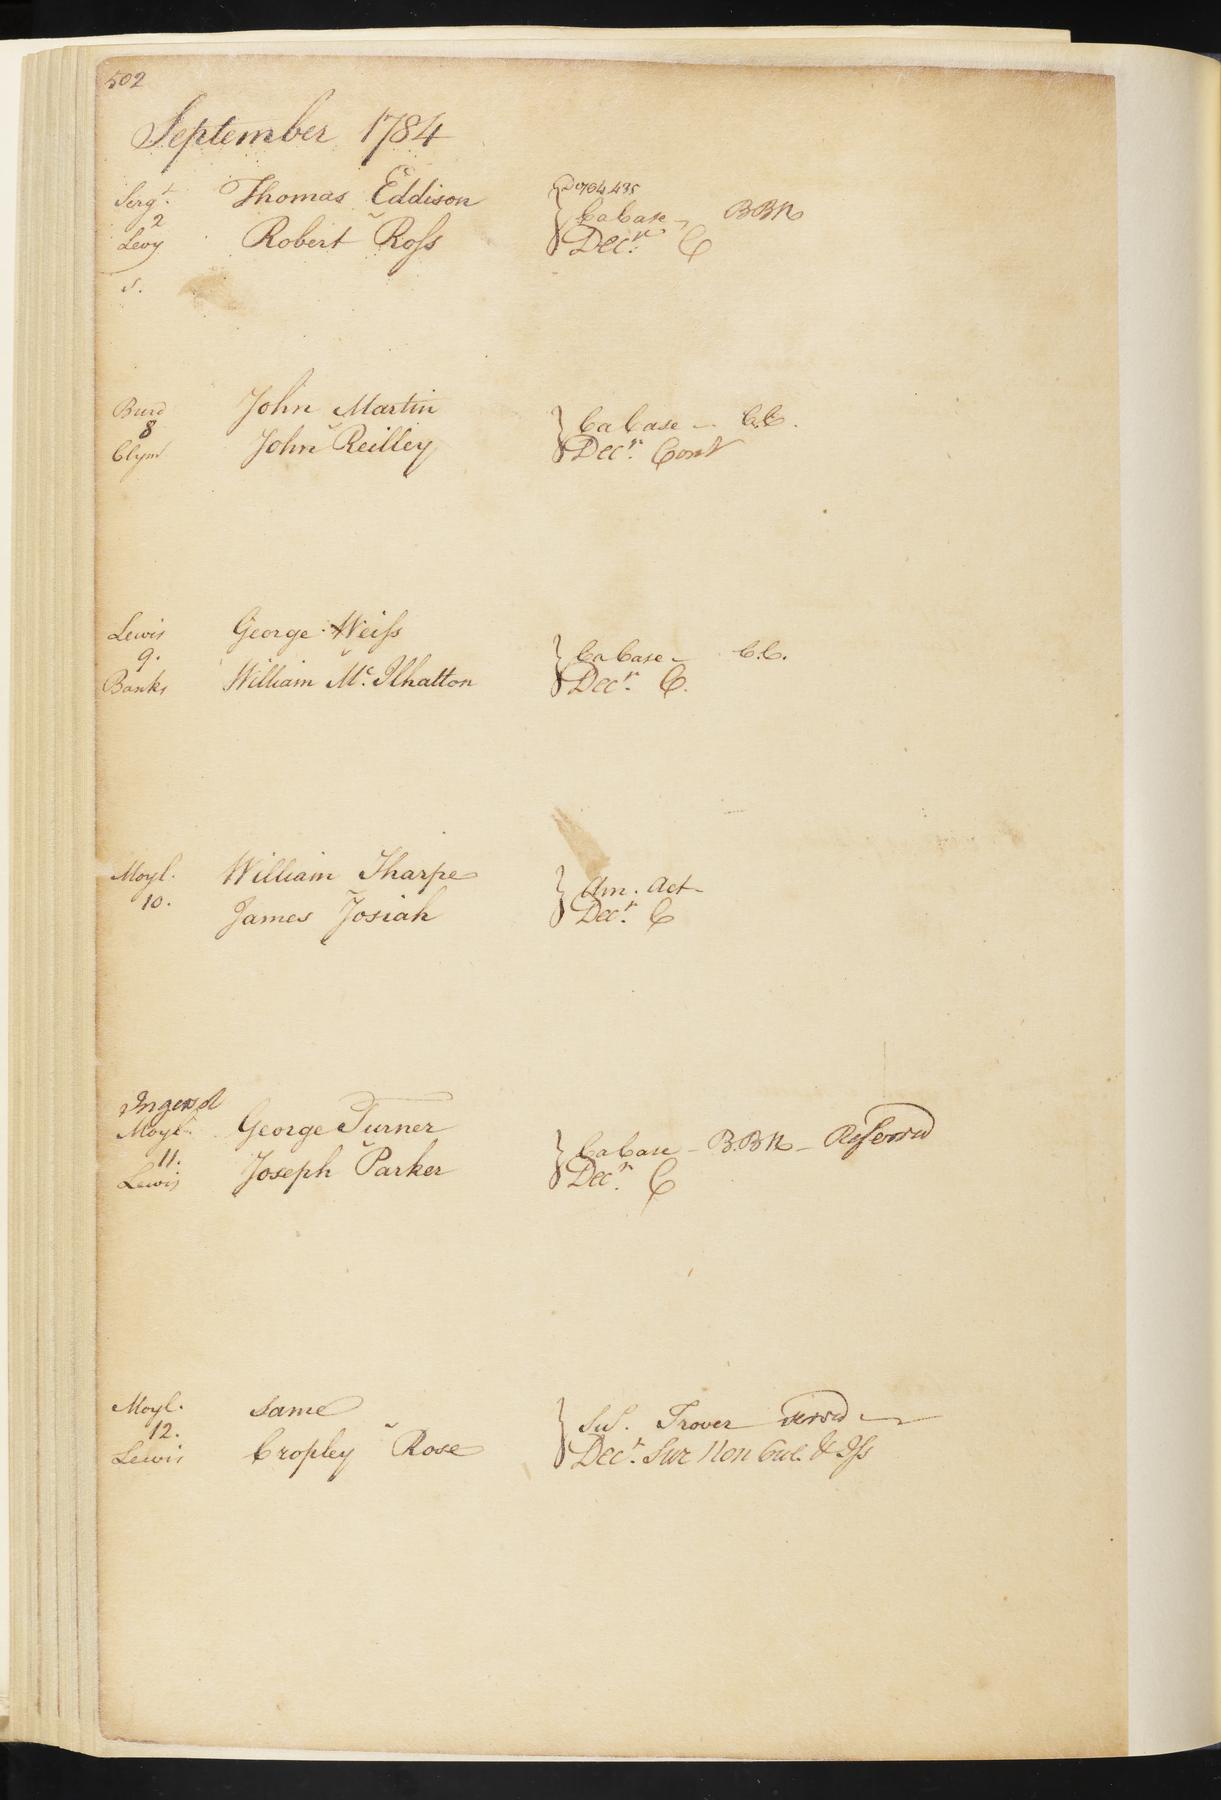 502
September 1784
Sergt. Thomas Eddison
2
Levy Robert Ross
Ca Case BBN
Decn. C
s.
Burd John Martin
8
Clym John Reilley
Ca Case C.C.
Decn. Cont
Lewis George Weiss
9.
Banks William Mc. Ilhatton
Ca Case C.C.
Decn. C.
Moyl. William Tharpe
10.
James Josiah
Am. Act
Decn. C
Ingersol
Moyl. George Turner
11.
Lewis Joseph Parker
Ca Case - B.BN - Referred
Decn. C
Moyl. Same
12.
Lewis Cropley Rose
Su[.] Trover
Decn. Sur Non Cul. & Iss